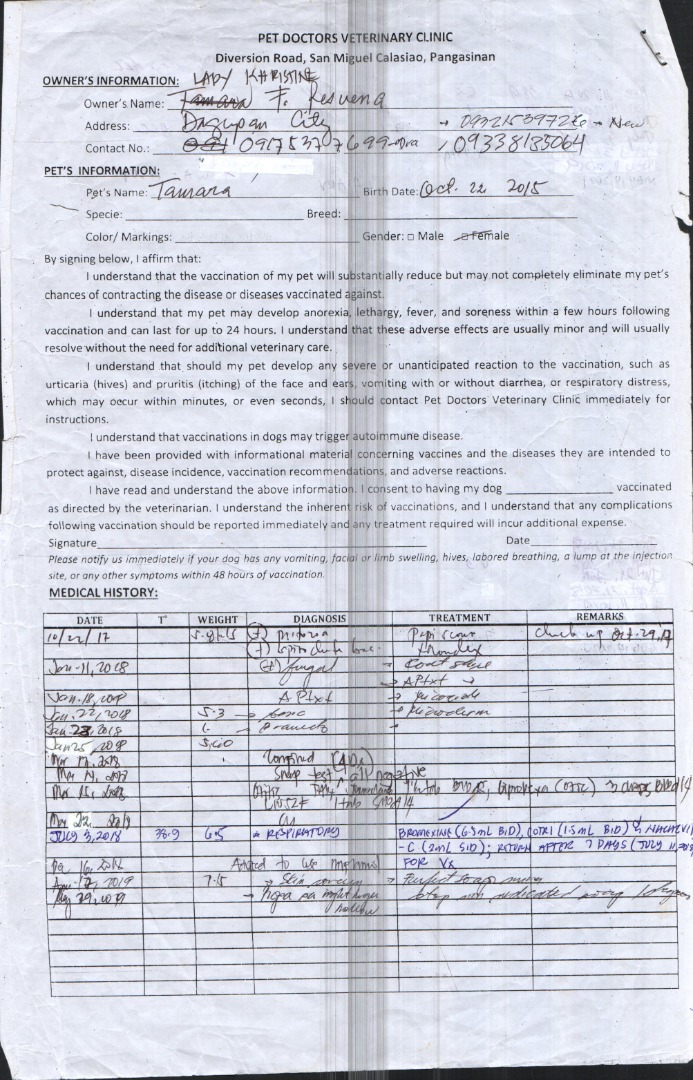 PET DOCTORS VETERINARY CLINIC
Diversion Road, San Miguel Calasiao, Pangasinan
OWNER'S INFORMATION: LADY KHRISTINE
Owner's Name: Tamara F. Resuena
Address: Dagupan City → 09321539728 → New
Contact No.: 09175307699 / 09338185064
PET'S INFORMATION:
Pet's Name: Tamara Birth Date: Oct. 22 2015
Specie: Breed:
Color/ Markings: Gender: □ Male □ Female
By signing below, I affirm that:
I understand that the vaccination of my pet will substantially reduce but may not completely eliminate my pet's
chances of contracting the disease or diseases vaccinated against.
I understand that my pet may develop anorexia, lethargy, fever, and soreness within a few hours following
vaccination and can last for up to 24 hours. I understand that these adverse effects are usually minor and will usually
resolve without the need for additional veterinary care.
I understand that should my pet develop any severe or unanticipated reaction to the vaccination, such as
urticaria (hives) and pruritis (itching) of the face and ears, vomiting with or without diarrhea, or respiratory distress,
which may occur within minutes, or even seconds, I should contact Pet Doctors Veterinary Clinic immediately for
instructions.
I understand that vaccinations in dogs may trigger autoimmune disease.
I have been provided with informational material concerning vaccines and the diseases they are intended to
protect against, disease incidence, vaccination recommendations, and adverse reactions.
I have read and understand the above information. I consent to having my dog ____________ vaccinated
as directed by the veterinarian. I understand the inherent risk of vaccinations, and I understand that any complications
following vaccination should be reported immediately and any treatment required will incur additional expense.
Signature Date
Please notify us immediately if your dog has any vomiting, facial or limb swelling, hives, labored breathing, a lump at the injection
site, or any other symptoms within 48 hours of vaccination.
MEDICAL HISTORY:
DATE T° WEIGHT DIAGNOSIS TREATMENT REMARKS
10/22/17 check up Oct. 29, 17
Jan-11, 2018 (+) fungal
Jan. 18, 2018
Jan. 22, 2018 5.3
Jan 23, 2018
Jan 25, 2018
Mar 14, 2018 Snap test all negative
Mar 15, 2018
Mar 22, 2018
JULY 3, 2018 38.9 6.5 * RESPIRATORY BROMEXINE (6.5mL BID), COTRI (1.5mL BID)
-C (2mL SID); RETURN AFTER 7 DAYS (JULY 11, 2018)
FOR VX
2019 7.15 → Skin
29, 2019